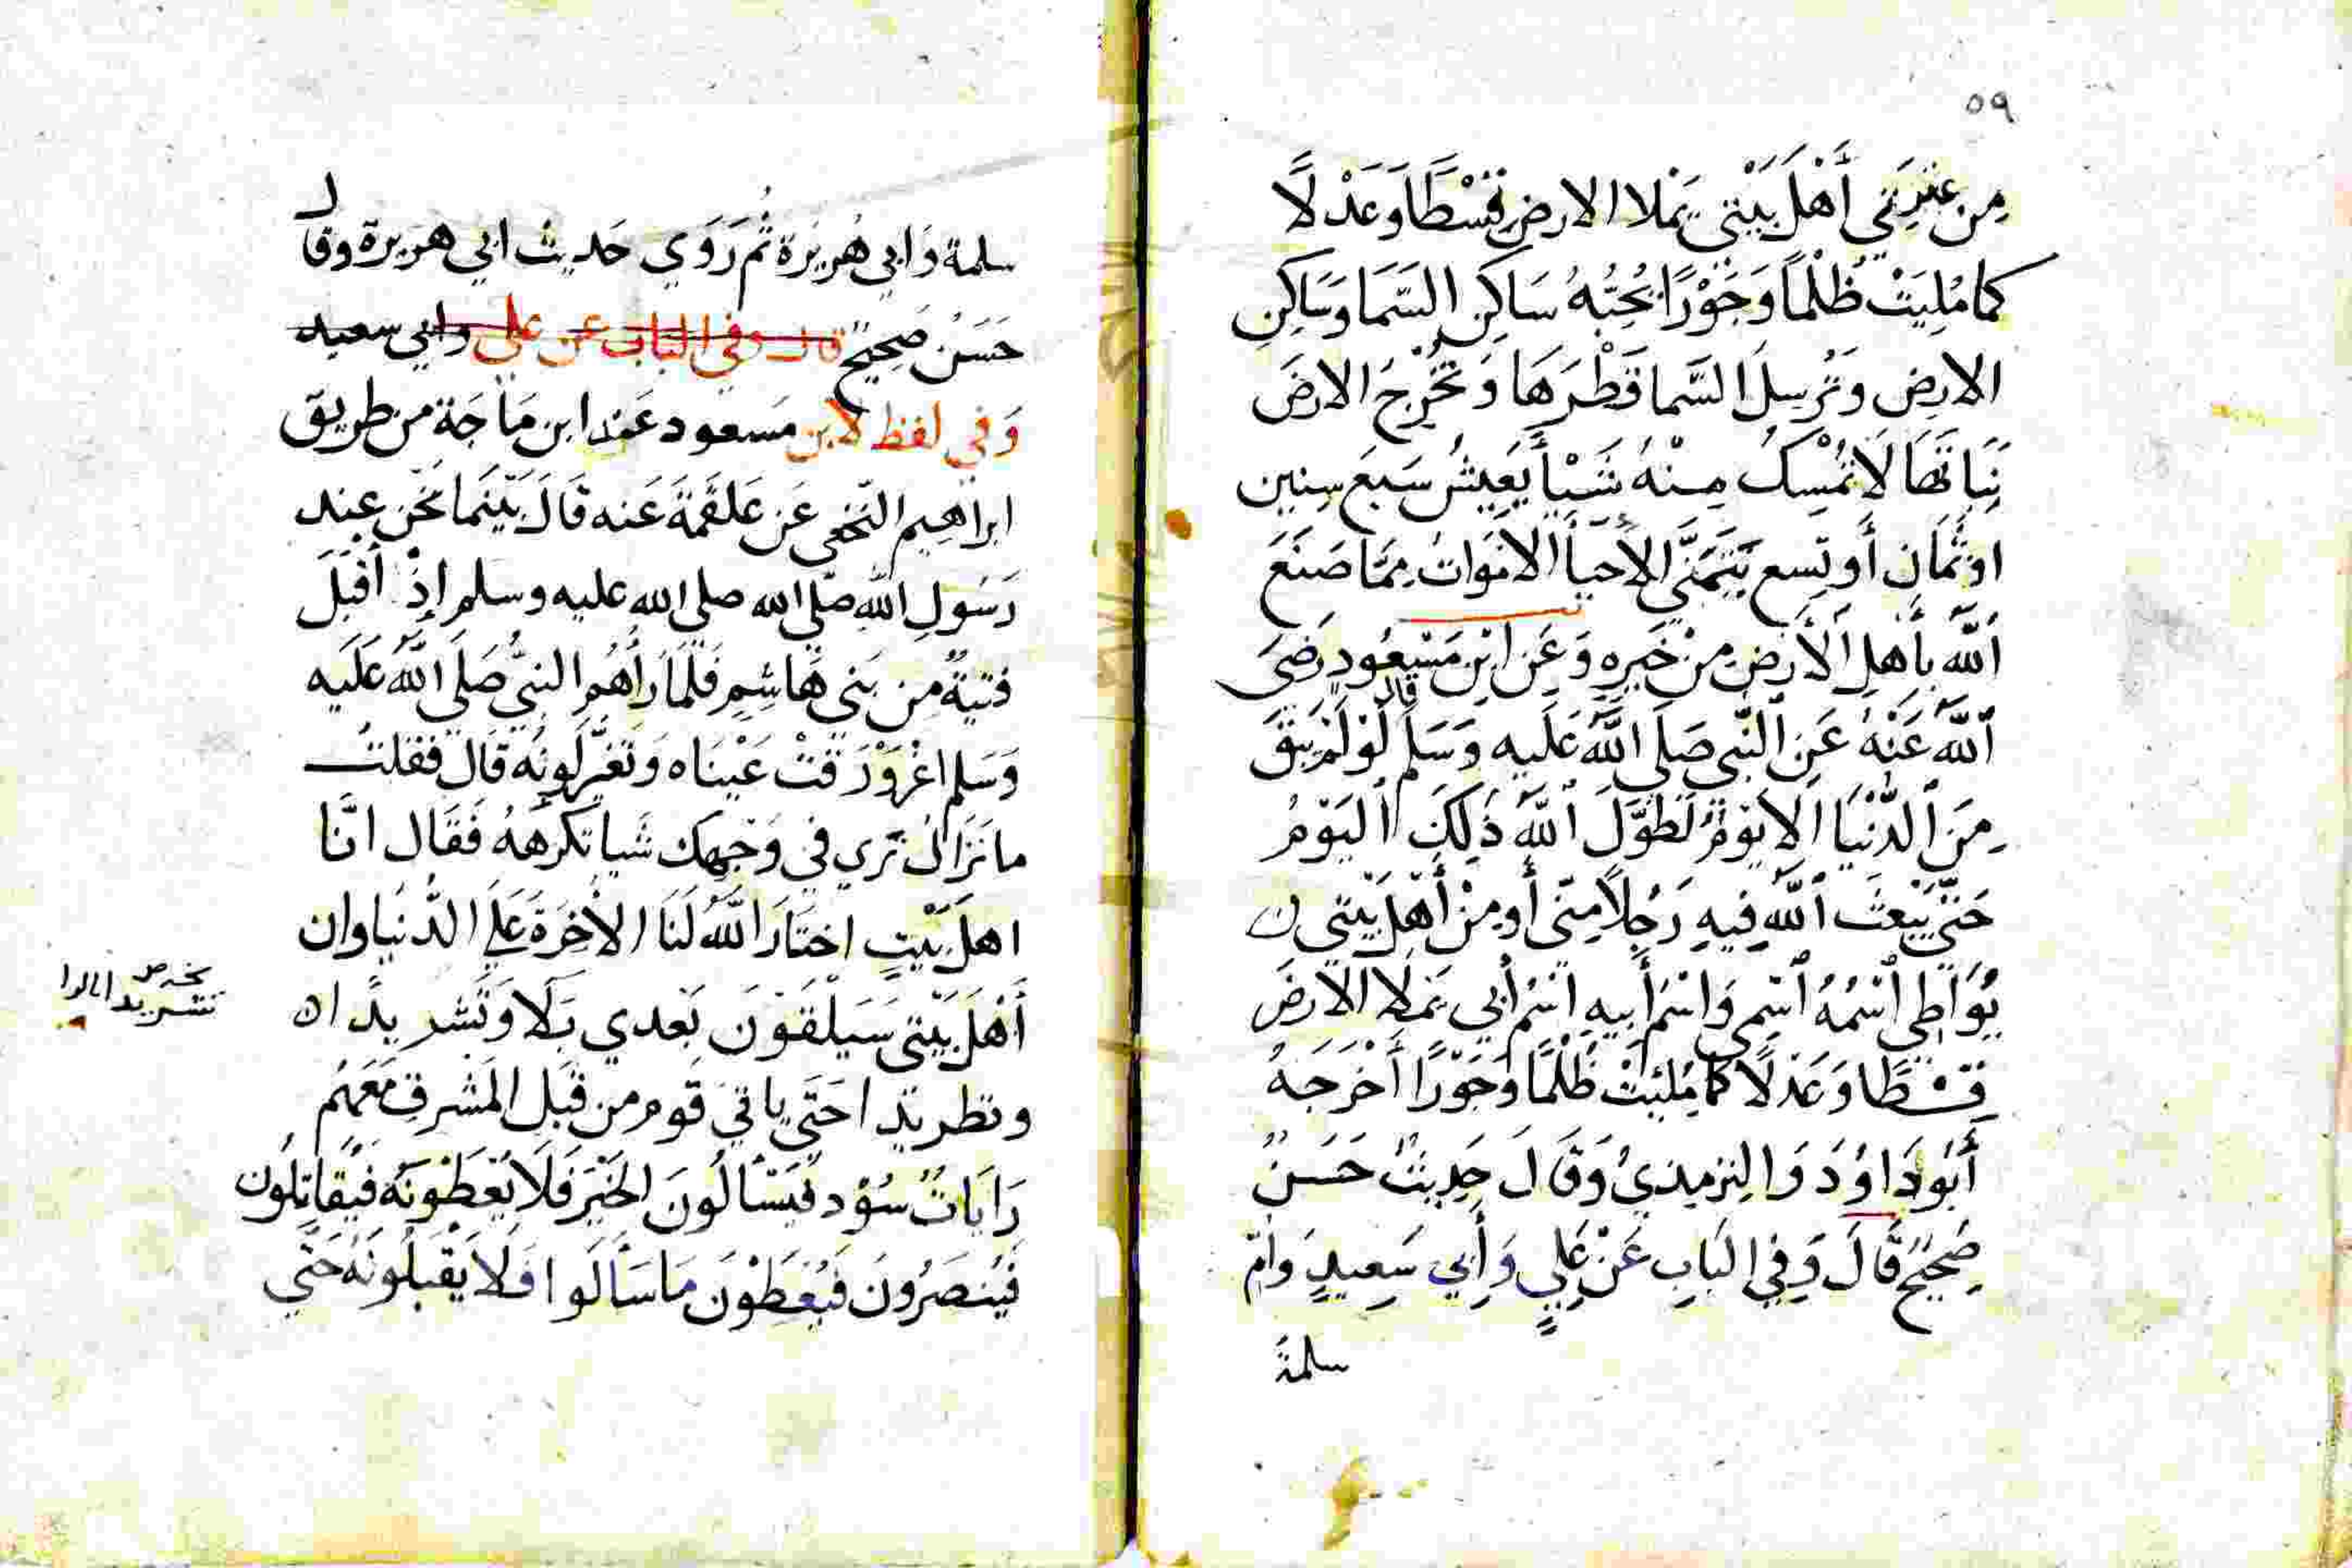 ٥٩
مِن عِترَتي أَهْلَ بَيْتي يَملا الارضِ قِسْطًا وَعَدْلًا
كما مُلِيَتْ ظُلْماً وَجَوْرًا يُحِبُّهُ سَاكِن السَّمَا وَسَاكِن
الارضِ وَتُرسِلَ السَّما قَطْرَهَا وَتُخْرِجَ الارضَ
نَبَاتَهَا لَا تُمْسِكُ مِنْهُ شَيْأً يَعِيشُ سَبعَ سِنين
اوثَمَانِ أَو تِسع يَتَمَنَّى الأحيأ الامَوَاتَ مِمَّا صَنَعَ
اَللَّه بأَهلِ اَلأرضِ مِنْ خَيرِهِ وَعَن ابْنِ مَسْعُودٍ رَضيَ
اَللَّهَ عَنْهُ عَنِ النَّبي صَلَى اللَّهَ عَلَيه وَسَلم قال لَوْ لَمْ يَبقَ
مِنَ الدُّنْيَا اَلا يَومٌ لَطَوَّلَ اَللَّهَ ذَلِكَ اليَوْمُ
حَتَّى يَبْعثَ اَللَّه فِيهِ رَجُلاً مِنّي أَو مِنْ أَهْلَ بَيْتي
يُوَاطِي اُسْمُهُ اَسْمِي وَاسْمُ أَبيهِ اسْمُ أَبي يَملا الارضَ
قِسْطًا وَعَدلًا كَمَا مُلئَتْ ظُلْمًا وَجَوْرًا أَخْرَجَهُ
أَبُو دَاوُدَ وَالتِرمِيذيُ وَقَالَ حَدِيثٌ حَسَنٌ
صَحِيْحٌ قَالَ وَفي البَابِ عَنْ عَلِيٍ وَأَبي سَعِيدٍ وَامّ
سلمة
سلمة وَابي هُريْرة ثُم رَوَي حَديث ابي هريرة وقال
حَسَنٌ صَحِيحٌ قال وفي الباب عن علي وابي سعيد
وَفي لفظ لابن مَسعود عَند ابن مَاجَة من طريق
ابراهيم النّخعي عَن عَلقَمَة عَنه قَالَ بَيْنَما نَحْن عِند
رَسُولِ اللَّه صَلّي الله صلي الله عليه وسلم إذْ أقبَلَ
فتيةٌ مِن بَني هَاشِمٍ فَلمَا رَاهُم النبيُّ صَلَى اللَّهَ عَلَيه
وَسَلم اغْرَوْرَقَتْ عَيْنَاه وَتَغَيَّر لَونُه قَال فقلت
ما نَزَالُ نَرَي في وَجهِك شَيا تكرَهُهُ فَقَال انَّا
اهلَ بَيْتٍ اختَارَ اللَّهَ لَنَا الأخِرَةَ عَلَى الدُّنيَا وان
أَهْلَ بَيْتي سَيَلْقَوْنَ بَعدي بَلَا وَتَشريدًا ه
وتطريدا حَتَّى ياتي قَوم من قِبَلِ المَشرِقِ مَعَهُم
رَايَاتٌ سُوْد فَيَسْألُونَ الخَيْرَ فَلَا يُعْطَوْنَهُ فَيُقَاتِلُون
فَيُنصَرُونَ فَيُعْطَوْنَ مَا سَألُوا فَلَا يَقْبَلُونَهُ حَتَّى
تشريدا